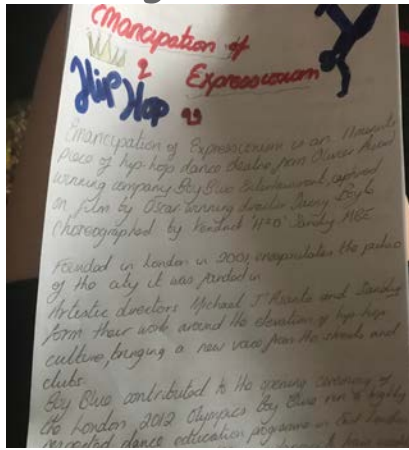 Emancipation of
Expressionism
Hip Hop
Emancipation of Expressionism is an
piece of hip-hop dance theatre from Olivier Award
winning company Boy Blue Entertainment, captured
on film by Oscar winning director Danny Boyle
Choreographed by Kenrick 'H2O' Sandy MBE
Founded in London in 2001, encapsulates the
of the city it was
Artistic directors Michael 'J' Asante and Sandy
form their work around the elevation of hip-hop
culture, bringing a new voice from the streets and
clubs.
Boy Blue contributed to the opening ceremony of
the London 2012 Olympics Boy Blue run a highly
respected dance education programme in East London